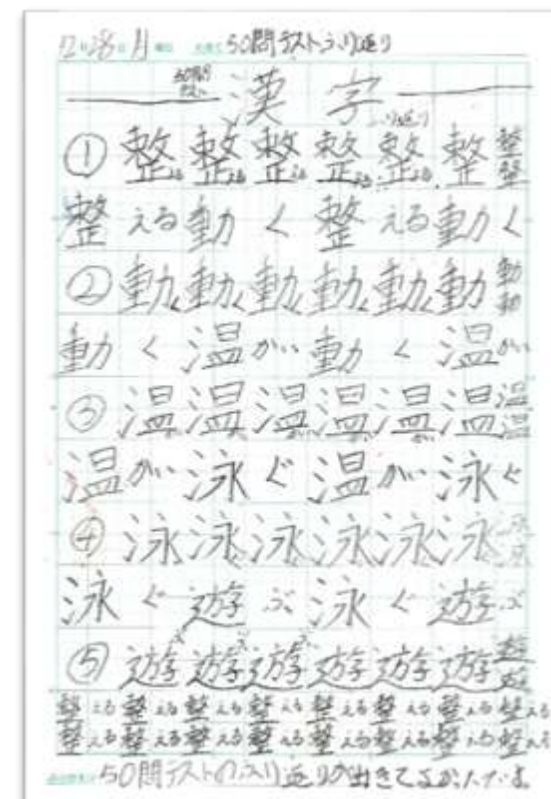 12月28日月曜日 50問テストふり返り
50問テスト 漢字 ふり返り
① 整える整える整える整える整える整 整整
整える動く整える動く
② 動く動く動く動く動く動 動動
動く温かい動く温かい
③ 温温温温温温 温温
温かい泳ぐ温かい泳ぐ
④ 泳泳泳泳泳泳 泳泳
泳ぐ遊ぶ泳ぐ遊ぶ
⑤ 遊ぶ遊ぶ遊ぶ遊遊遊 遊遊
整える整える整える整える整える整える整える整える
整える整える整える整える整える整える整える整える
50問テストのふり返りが出きてよかったです。